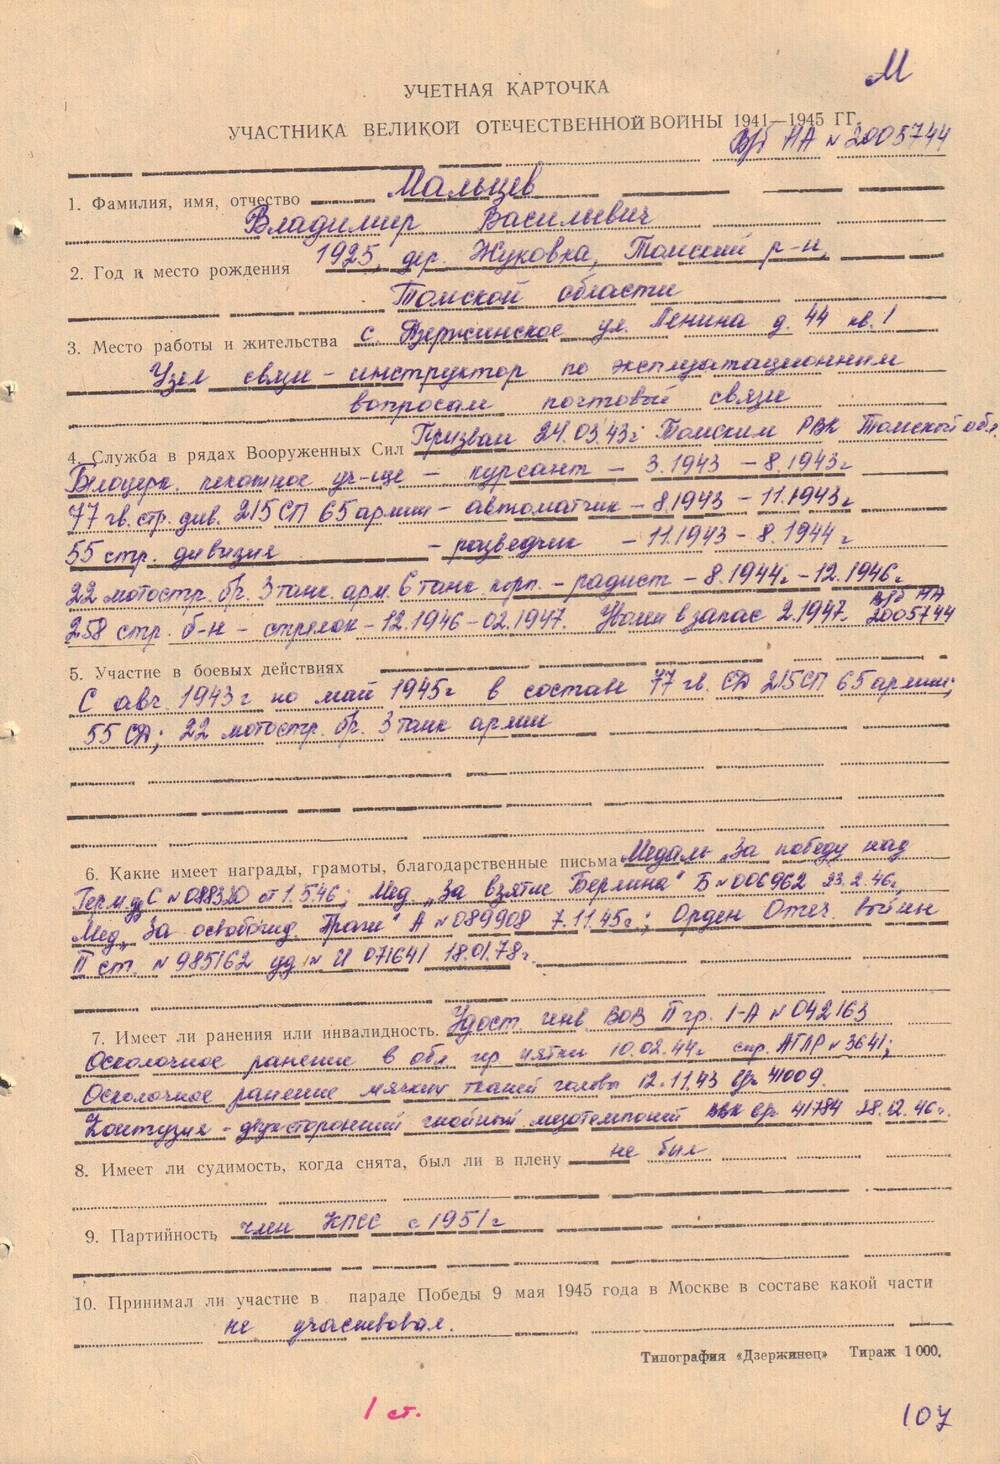 М
УЧЕТНАЯ КАРТОЧКА
УЧАСТНИКА ВЕЛИКОЙ ОТЕЧЕСТВЕННОЙ ВОЙНЫ 1941—1945 ГГ.
В/б НА № 2005744
1. Фамилия, имя, отчество Мальцев
Владимир Васильевич
2. Год и место рождения 1925, дер. Жуковка, Томский р-н,
Томской области
3. Место работы и жительства с. Дзержинское ул. Ленина д. 44 кв. 1
Узел связи - инструктор по эксплуатационным
вопросам почтовый связи
4. Служба в рядах Вооруженных Сил Призван 24.03.43г Томским РВК Томской обл.
Белоцерк. пехотное уч-ще - курсант - 3.1943 - 8.1943г
77 гв. стр. див. 215 СП 65 армии - автоматчик - 8.1943 - 11.1943г
55 стр. дивизия - разведчик - 11.1943 - 8.1944г
22 мотостр. бр. 3 танк. арм. 6 танк. корп. - радист - 8.1944г. - 12.1946г.
258 стр. б-н - стрелок - 12.1946 - 02.1947. Уволен в запас 2.1947. в/б НА 2005744
5. Участие в боевых действиях
С авг. 1943г по май 1945г в составе 77 гв. СД 215 СП 65 армии;
55 СД; 22 мотостр. бр. 3 танк армии
6. Какие имеет награды, грамоты, благодарственные письма Медаль „За победу над
Герм. уд С № 088320 от 1.5.46; Мед. „За взятие Берлина" Б № 006962 23.2.46г,
Мед. „За освобожд. Праги" А № 089908 7.11.45г.; Орден Отеч. войны
II ст. № 985162 уд № И 071641 18.01.78г.
7. Имеет ли ранения или инвалидность. Удост. инв ВОВ II гр. I-А № 042163
Осколочное ранение в обл. пятки 10.02.44г. спр. АГЛР № 3641;
Осколочное ранение мягких тканей головы 12.11.43 41009.
Контузия - двухсторонний гнойный 41784 28.12.46г.
8. Имеет ли судимость, когда снята, был ли в плену не был
9. Партийность член КПСС с 1951г
10. Принимал ли участие в параде Победы 9 мая 1945 года в Москве в составе какой части
не участвовал.
Типография «Дзержинец» Тираж 1 000.
1 ст.
107